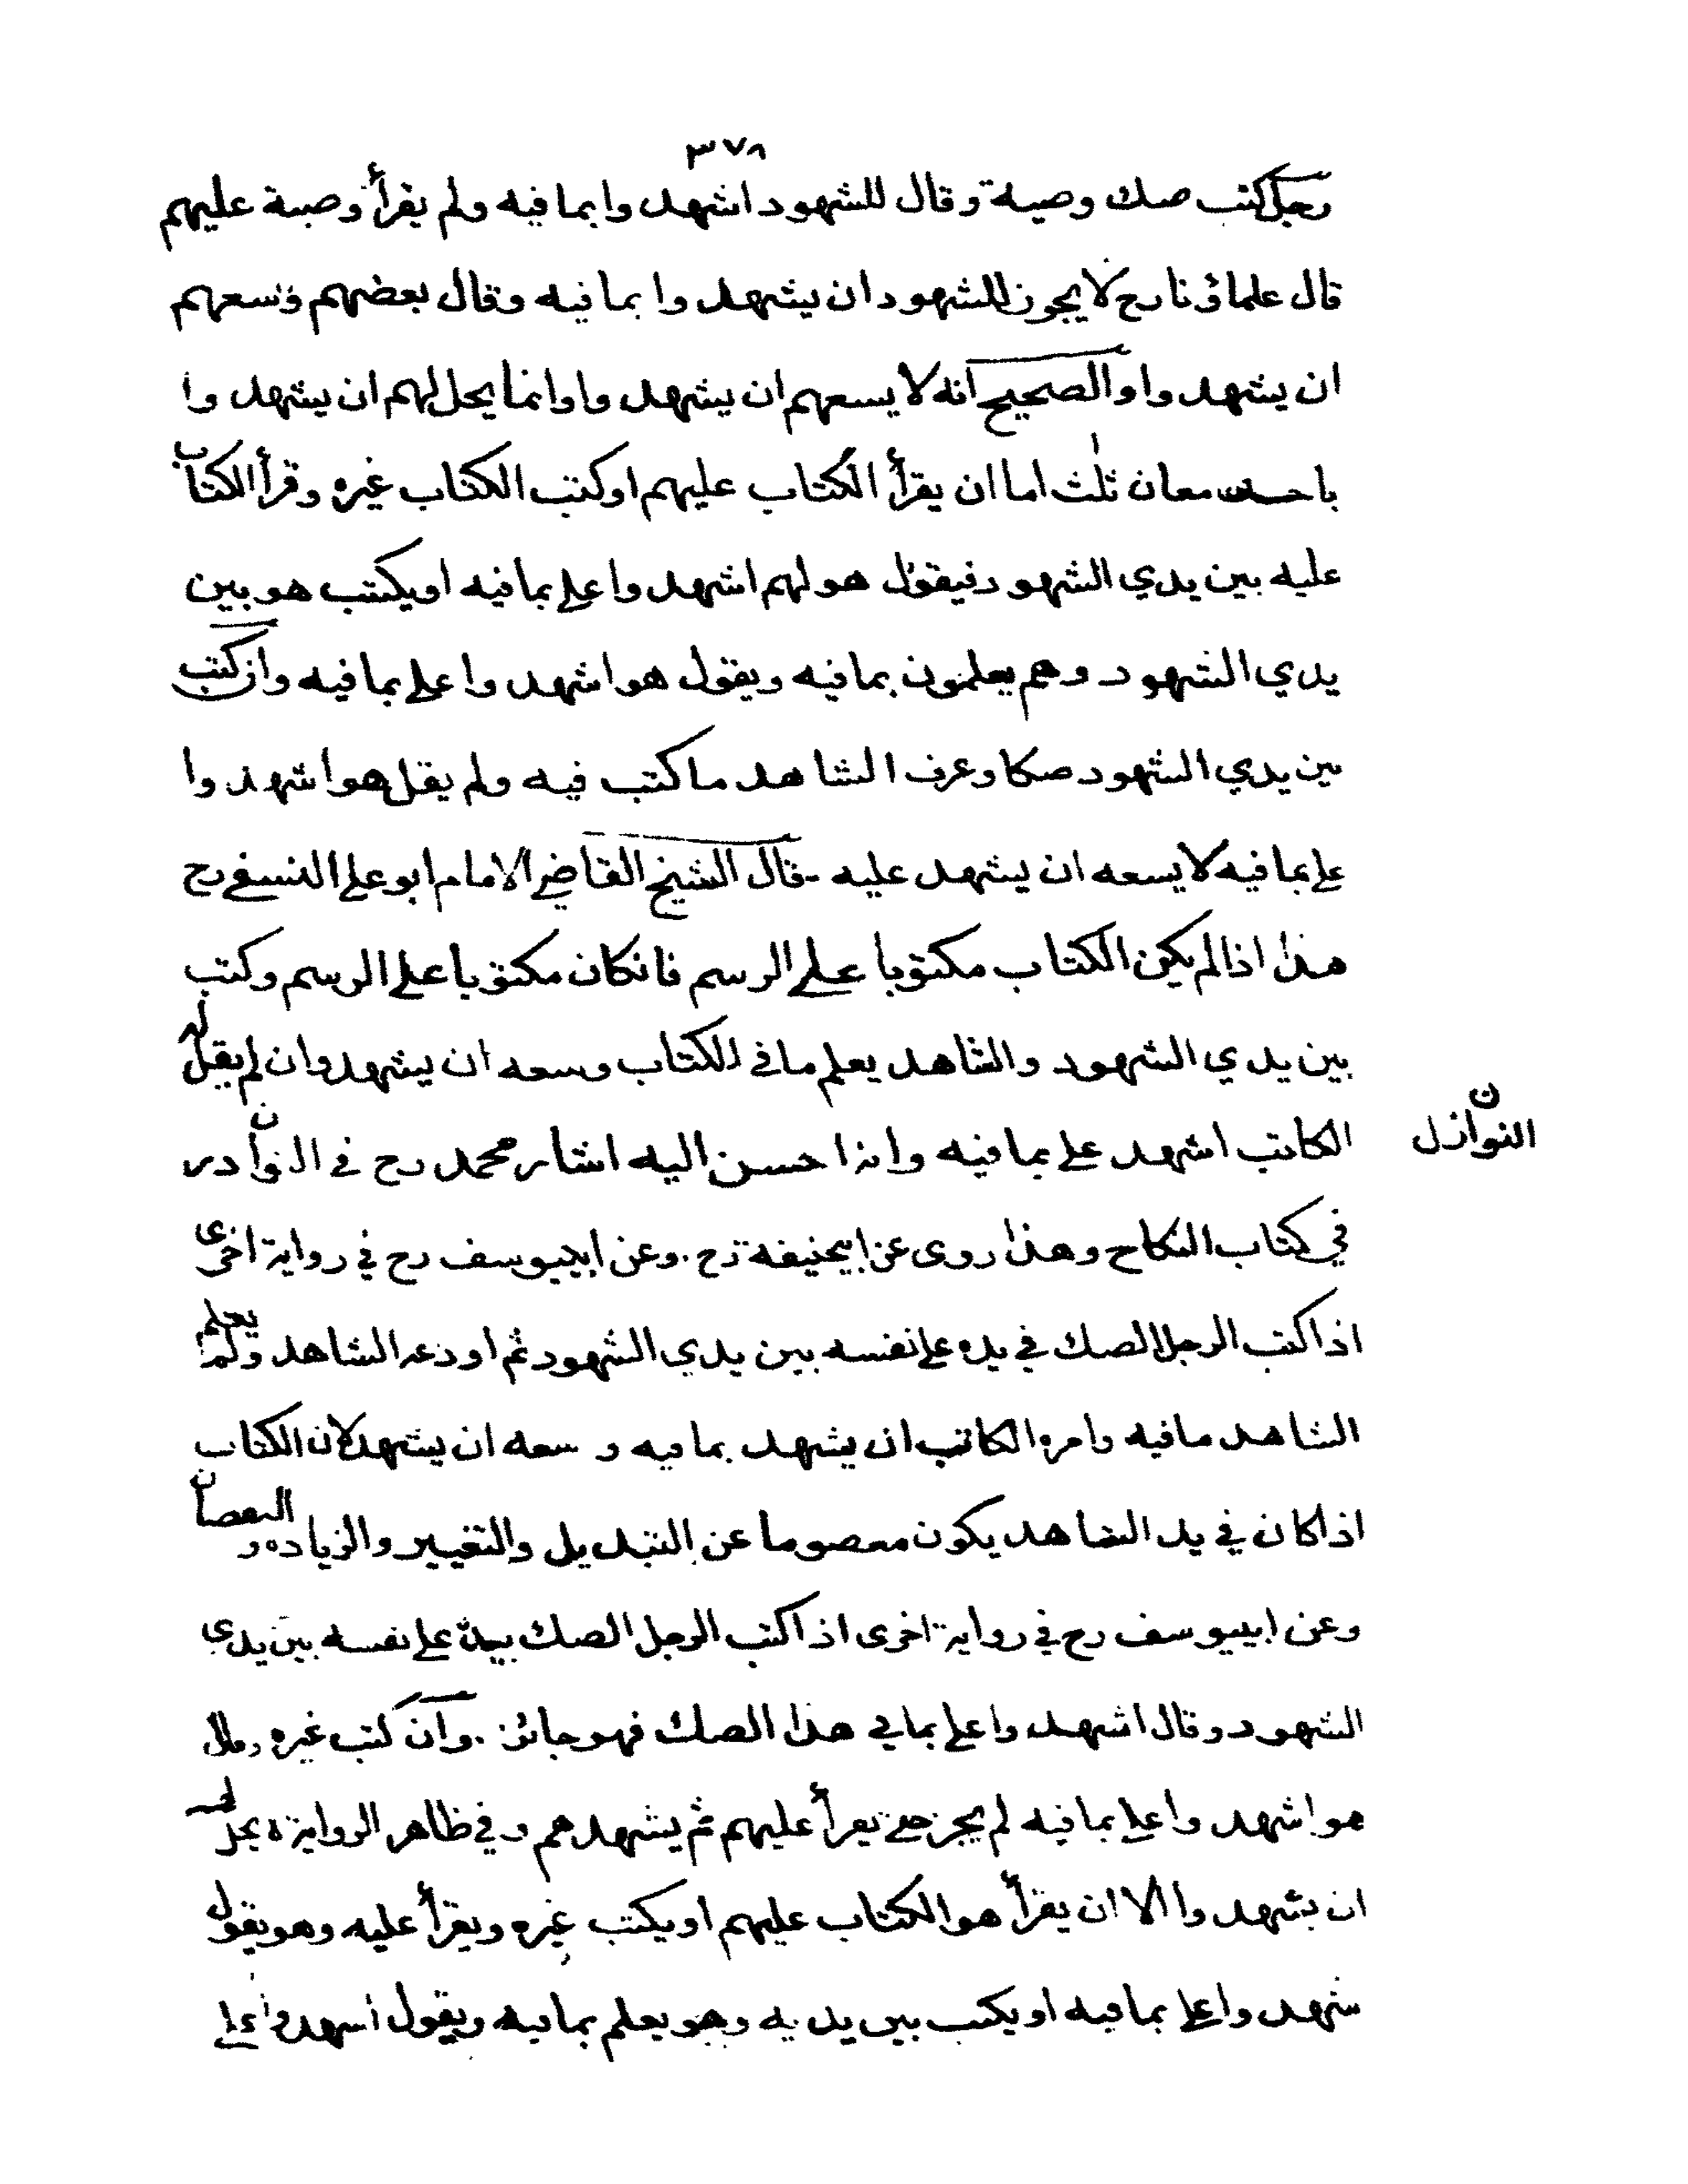 ٣٧٨
رجل كتب صك وصية وقال للشهود اشهدوا بما فيه ولم يقرأ وصية عليهم
قال علماؤنا رح لا يجوز للشهود ان يشهدوا بما فيه وقال بعضهم وسعهم
ان يشهدوا والصحيح انه لا يسعهم ان يشهدوا وانما يحل لهم ان يشهدوا
باحدى معان ثلٰث اما ان يقرأ الكتاب عليهم او كتب الكتاب غيره وقرأ الكتاب
عليه بين يدي الشهود فيقول هو لهم اشهدوا علي بما فيه او يكتب هو بين
يدي الشهود وهم يعلمون بما فيه ويقول هو اشهدوا علي بما فيه وان كتب
بين يدي الشهود صكا وعرف الشاهد ما كتب فيه ولم يقل هو اشهدوا
علي بما فيه لا يسعه ان يشهد عليه - قال الشيخ القاضي الامام ابو علي النسفي رح
هذا اذا لم يكن الكتاب مكتوبا على الرسم فانكان مكتوبا على الرسم وكتب
بين يدي الشهود والشاهد يعلم ما في الكتاب وسعه ان يشهد وان لم يقل له
الكاتب اشهد علي بما فيه وانه احسن اليه اشار محمد رح في النوادر
النوازل ن
في كتاب النكاح وهذا روى عن ابيحنيفة رح . وعن ابييوسف رح في رواية اخرى
اذا كتب الرجل الصك في يده على نفسه بين يدي الشهود ثم اودعه الشاهد ولم يعلم
الشاهد ما فيه وامره الكاتب ان يشهد بما فيه وسعه ان يشهد لان الكتاب
اذا كان في يد الشاهد يكون معصوما عن التبديل والتغيير والزيادة و النقصان
وعن ابييوسف رح في رواية اخرى اذا كتب الرجل الصك بيده على نفسه بين يدى
الشهود وقال اشهدوا علي بما في هذا الصك فهو جائز . وان كتب غيره وقال
هو اشهدوا علي بما فيه لم يجز حتى يقرأ عليهم ثم يشهدهم و في ظاهر الرواية لا يحل لهم
ان يشهدوا الا ان يقرأ هو الكتاب عليهم او يكتب غيره ويقرأ عليه وهو يقول
اشهدوا علي بما فيه او يكتب بين يديه وهو يعلم بما فيه ويقول اشهدوا علي